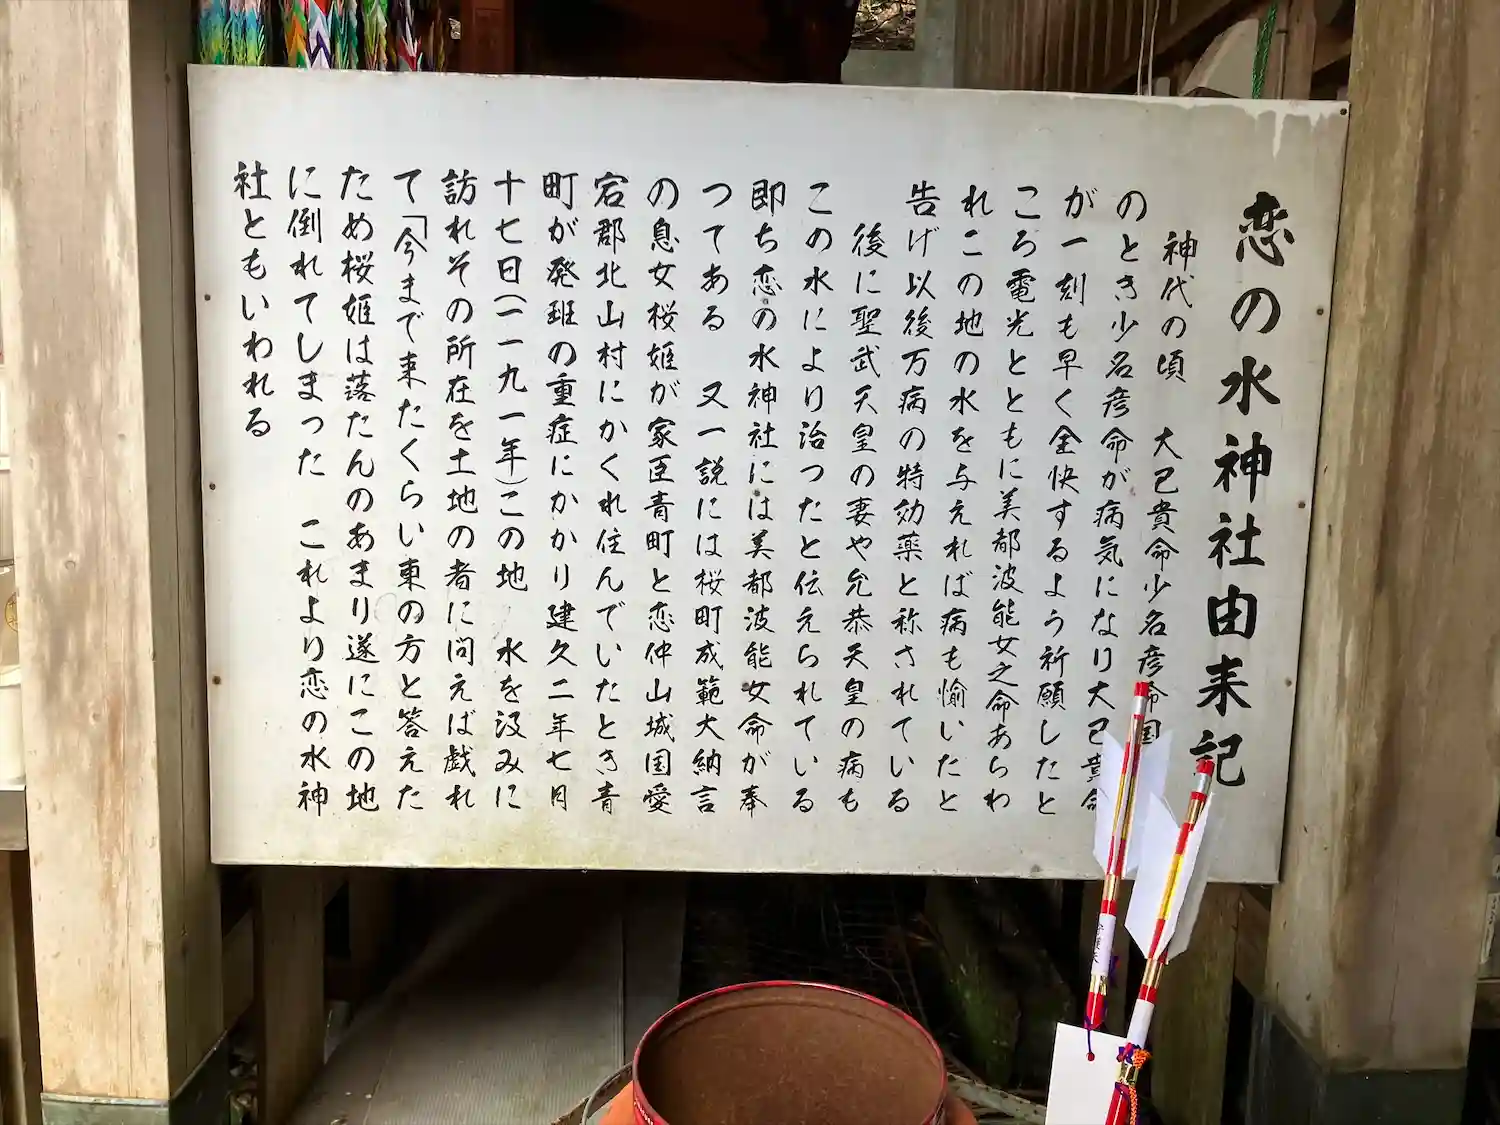 恋の水神社由来記
神代の頃　大己貴命少名彦命国
のとき少名彦命が病気になり大己貴命
が一刻も早く全快するよう祈願したと
ころ電光とともに美都波能女之命あらわ
れこの地の水を与えれば病も愉いたと
告げ以後万病の特効薬と称されている
後に聖武天皇の妻や允恭天皇の病も
この水により治つたと伝えられている
即ち恋の水神社には美都波能女命が奉
つてある　又一説には桜町成範大納言
の息女桜姫が家臣青町と恋仲山城国愛
宕郡北山村にかくれ住んでいたとき青
町が発斑の重症にかかり建久二年七月
十七日(一一九一年)この地　水を汲みに
訪れその所在を土地の者に問えば戯れ
て「今まで来たくらい東の方と答えた
ため桜姫は落たんのあまり遂にこの地
に倒れてしまった　これより恋の水神
社ともいわれる